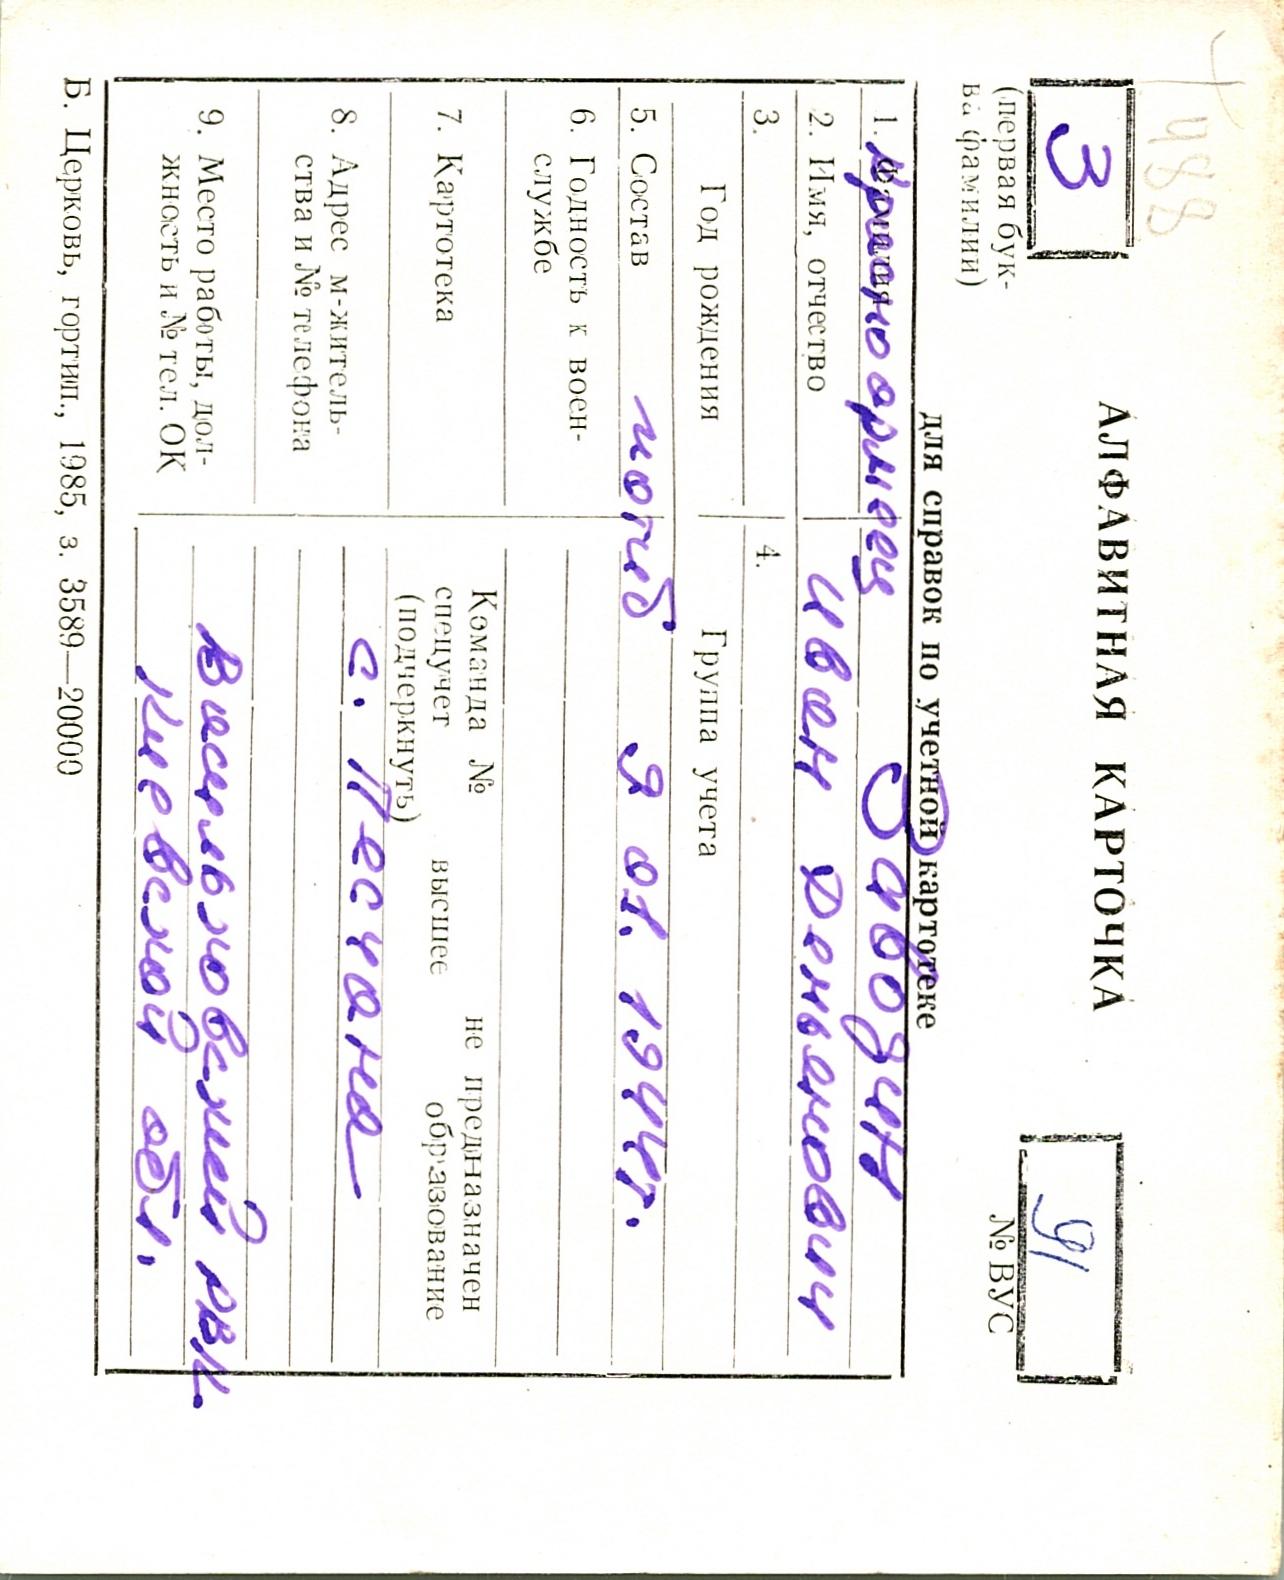 + 488
З
(первая бук-
ва фамилии)
АЛФАВИТНАЯ КАРТОЧКА
91
№ ВУС
для справок по учетной картотеке
1. Фамилия Красноармеец Заводин
2. Имя, отчество Иван Деньянович
3. Год рождения
4. Группа учета
5. Состав погиб 9 01. 1944г.
6. Годность к воен-
службе
7. Картотека
Команда № не предназначен
спецучет высшее образование
(подчеркнуть)
8. Адрес м-житель-
ства и № телефона
с. Песчана
9. Место работы, дол-
жность и № тел. ОК
Васильковский РВК.
Киевской обл.
Б. Церковь, гортип., 1985, з. 3589—20000